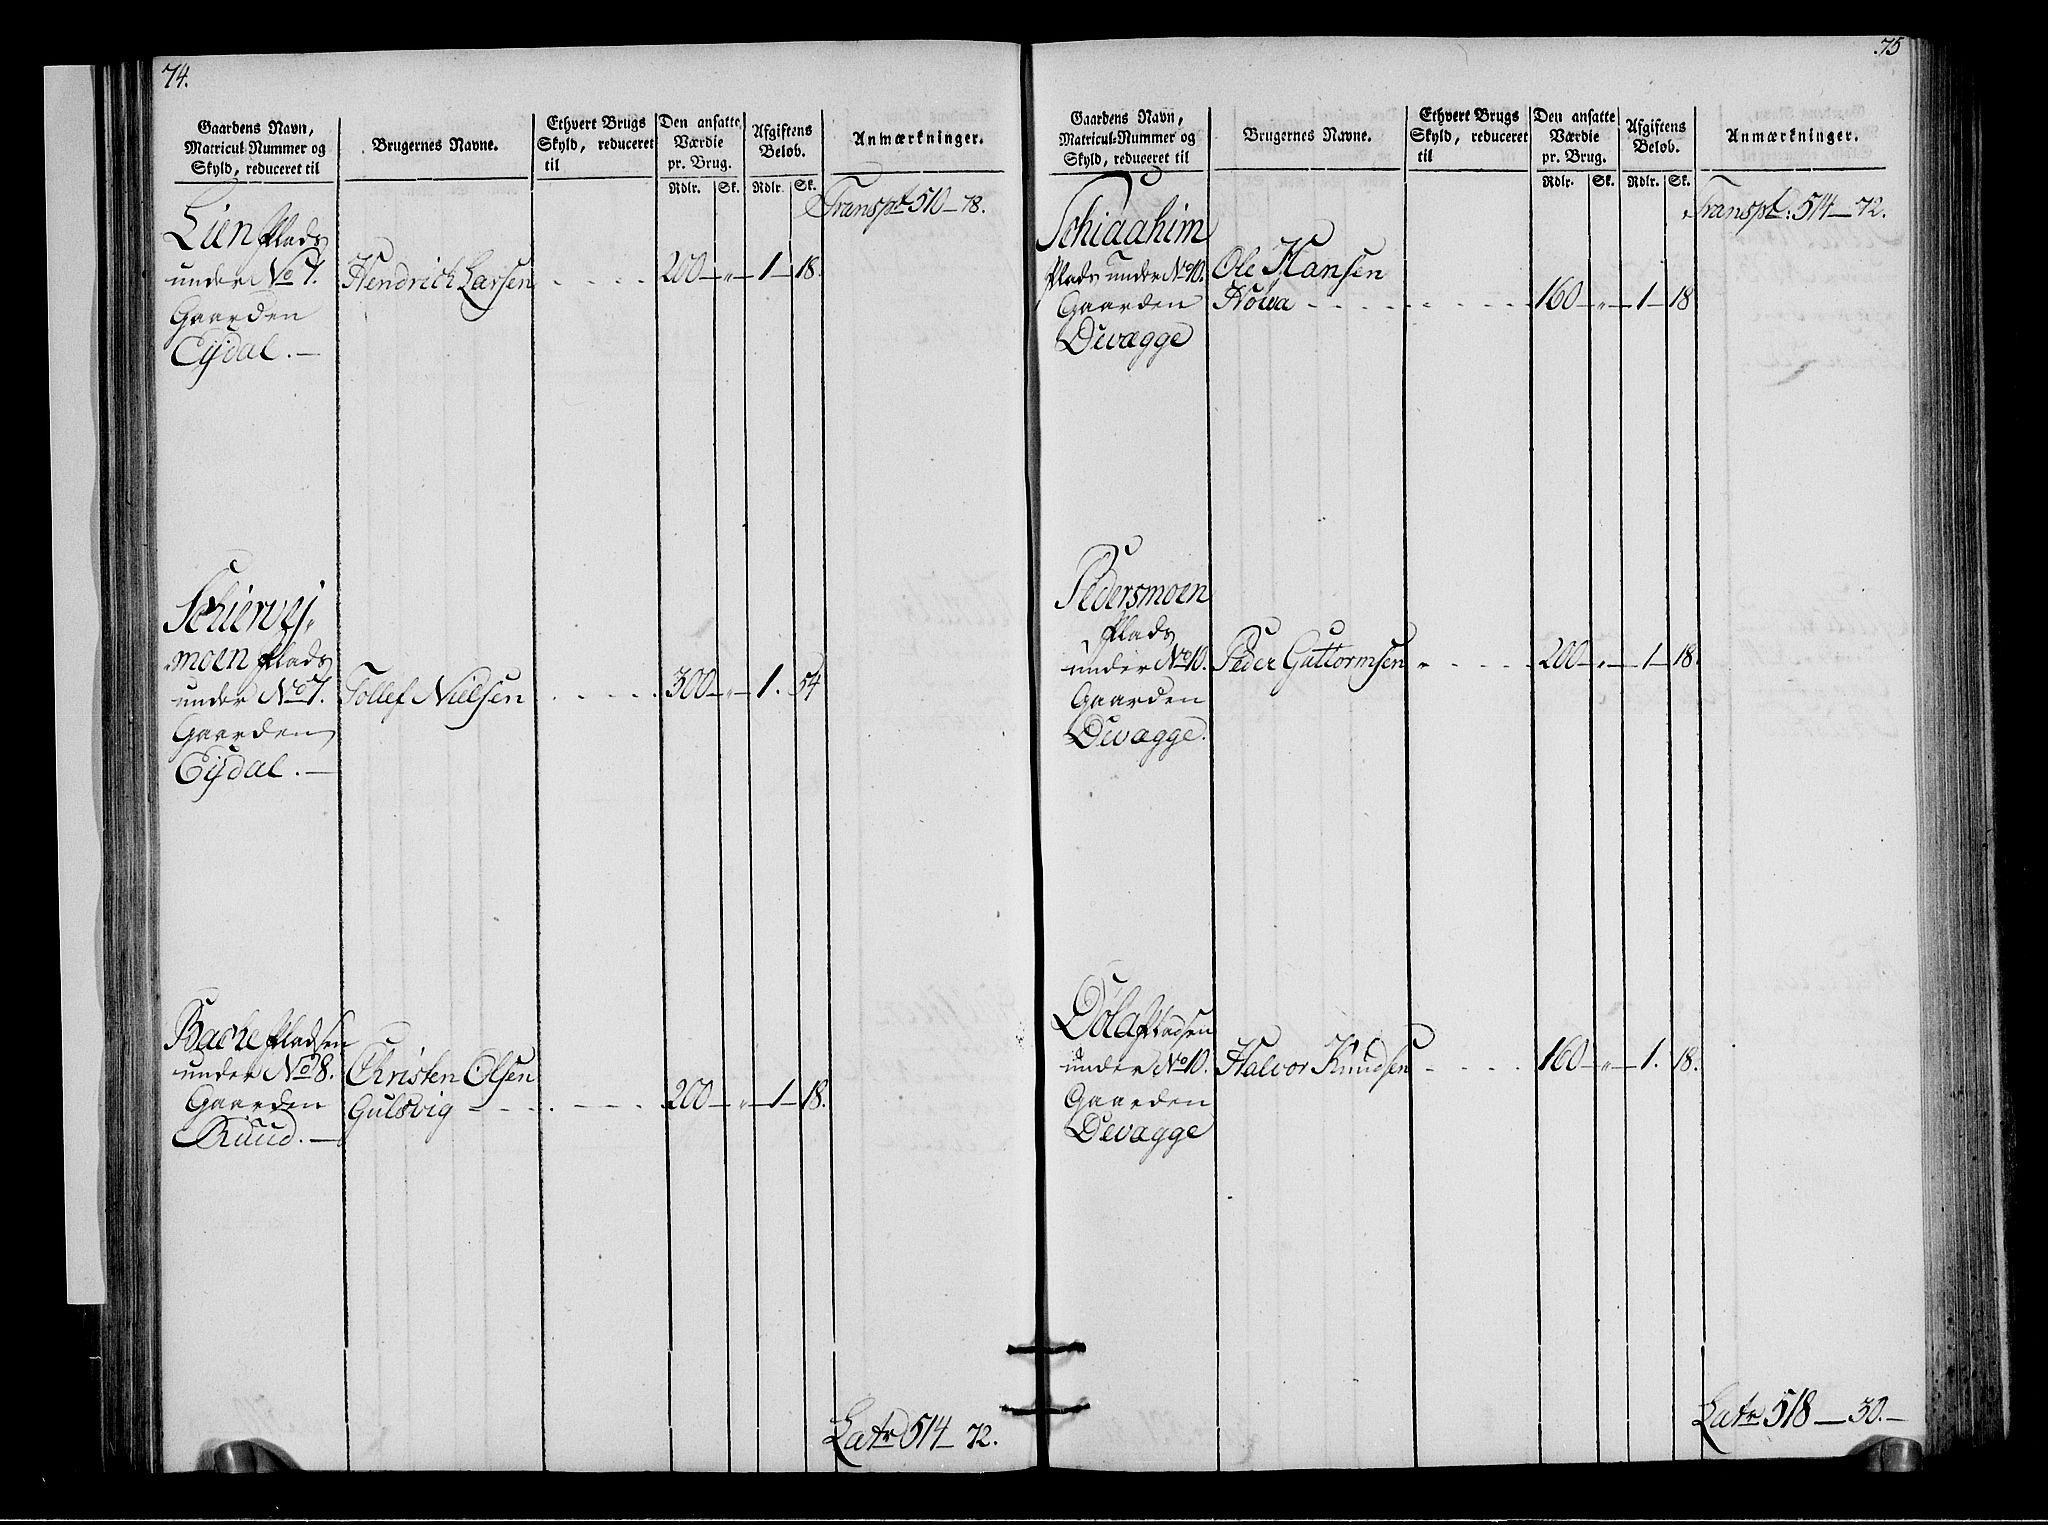 74.
Gaardens Navn,
Matricul-Nummer og
Skyld, reduceret til
Brugernes Navne.
Ethvert Brugs
Skyld, reduceret
til
Den ansatte
Værdie
pr. Brug.
Rdlr. Sk.
Afgiftens
Beløb.
Rdlr. Sk.
Anmærkninger.
Transpt 510 - 78.
Lien Plads
under No 7. Hendrich Larsen 200 - " - 1 - 18.
Gaarden
Eijdal. -
Schiervej-
moen Plads
under No 7. Tollef Nielsen 300 - " - 1. 54
Gaarden
Eijdal. -
Bache Pladsen
under No 8. Christen Olsen
Gaarden Gulsvig 200 - " - 1 - 18.
Ruud. -
Latr 514 - 72.
75
Gaardens Navn,
Matricul-Nummer og
Skyld, reduceret til
Brugernes Navne.
Ethvert Brugs
Skyld, reduceret
til
Den ansatte
Værdie
pr. Brug.
Rdlr. Sk.
Afgiftens
Beløb.
Rdlr. Sk.
Anmærkninger.
Transpt: 514 - 72.
Schiaahim
Plads under No 10. Ole Hansen
Gaarden 160 - " - 1 - 18
Divægge
Pedersmoen
Plads
under No 10. Peder Guttormsen 200 - " - 1 - 18.
Gaarden
Divægge.
Døla Pladsen
under No 10. Halvor Knudsen 160 - " - 1. 18.
Gaarden
Devægge
Latr 518 - 30. -